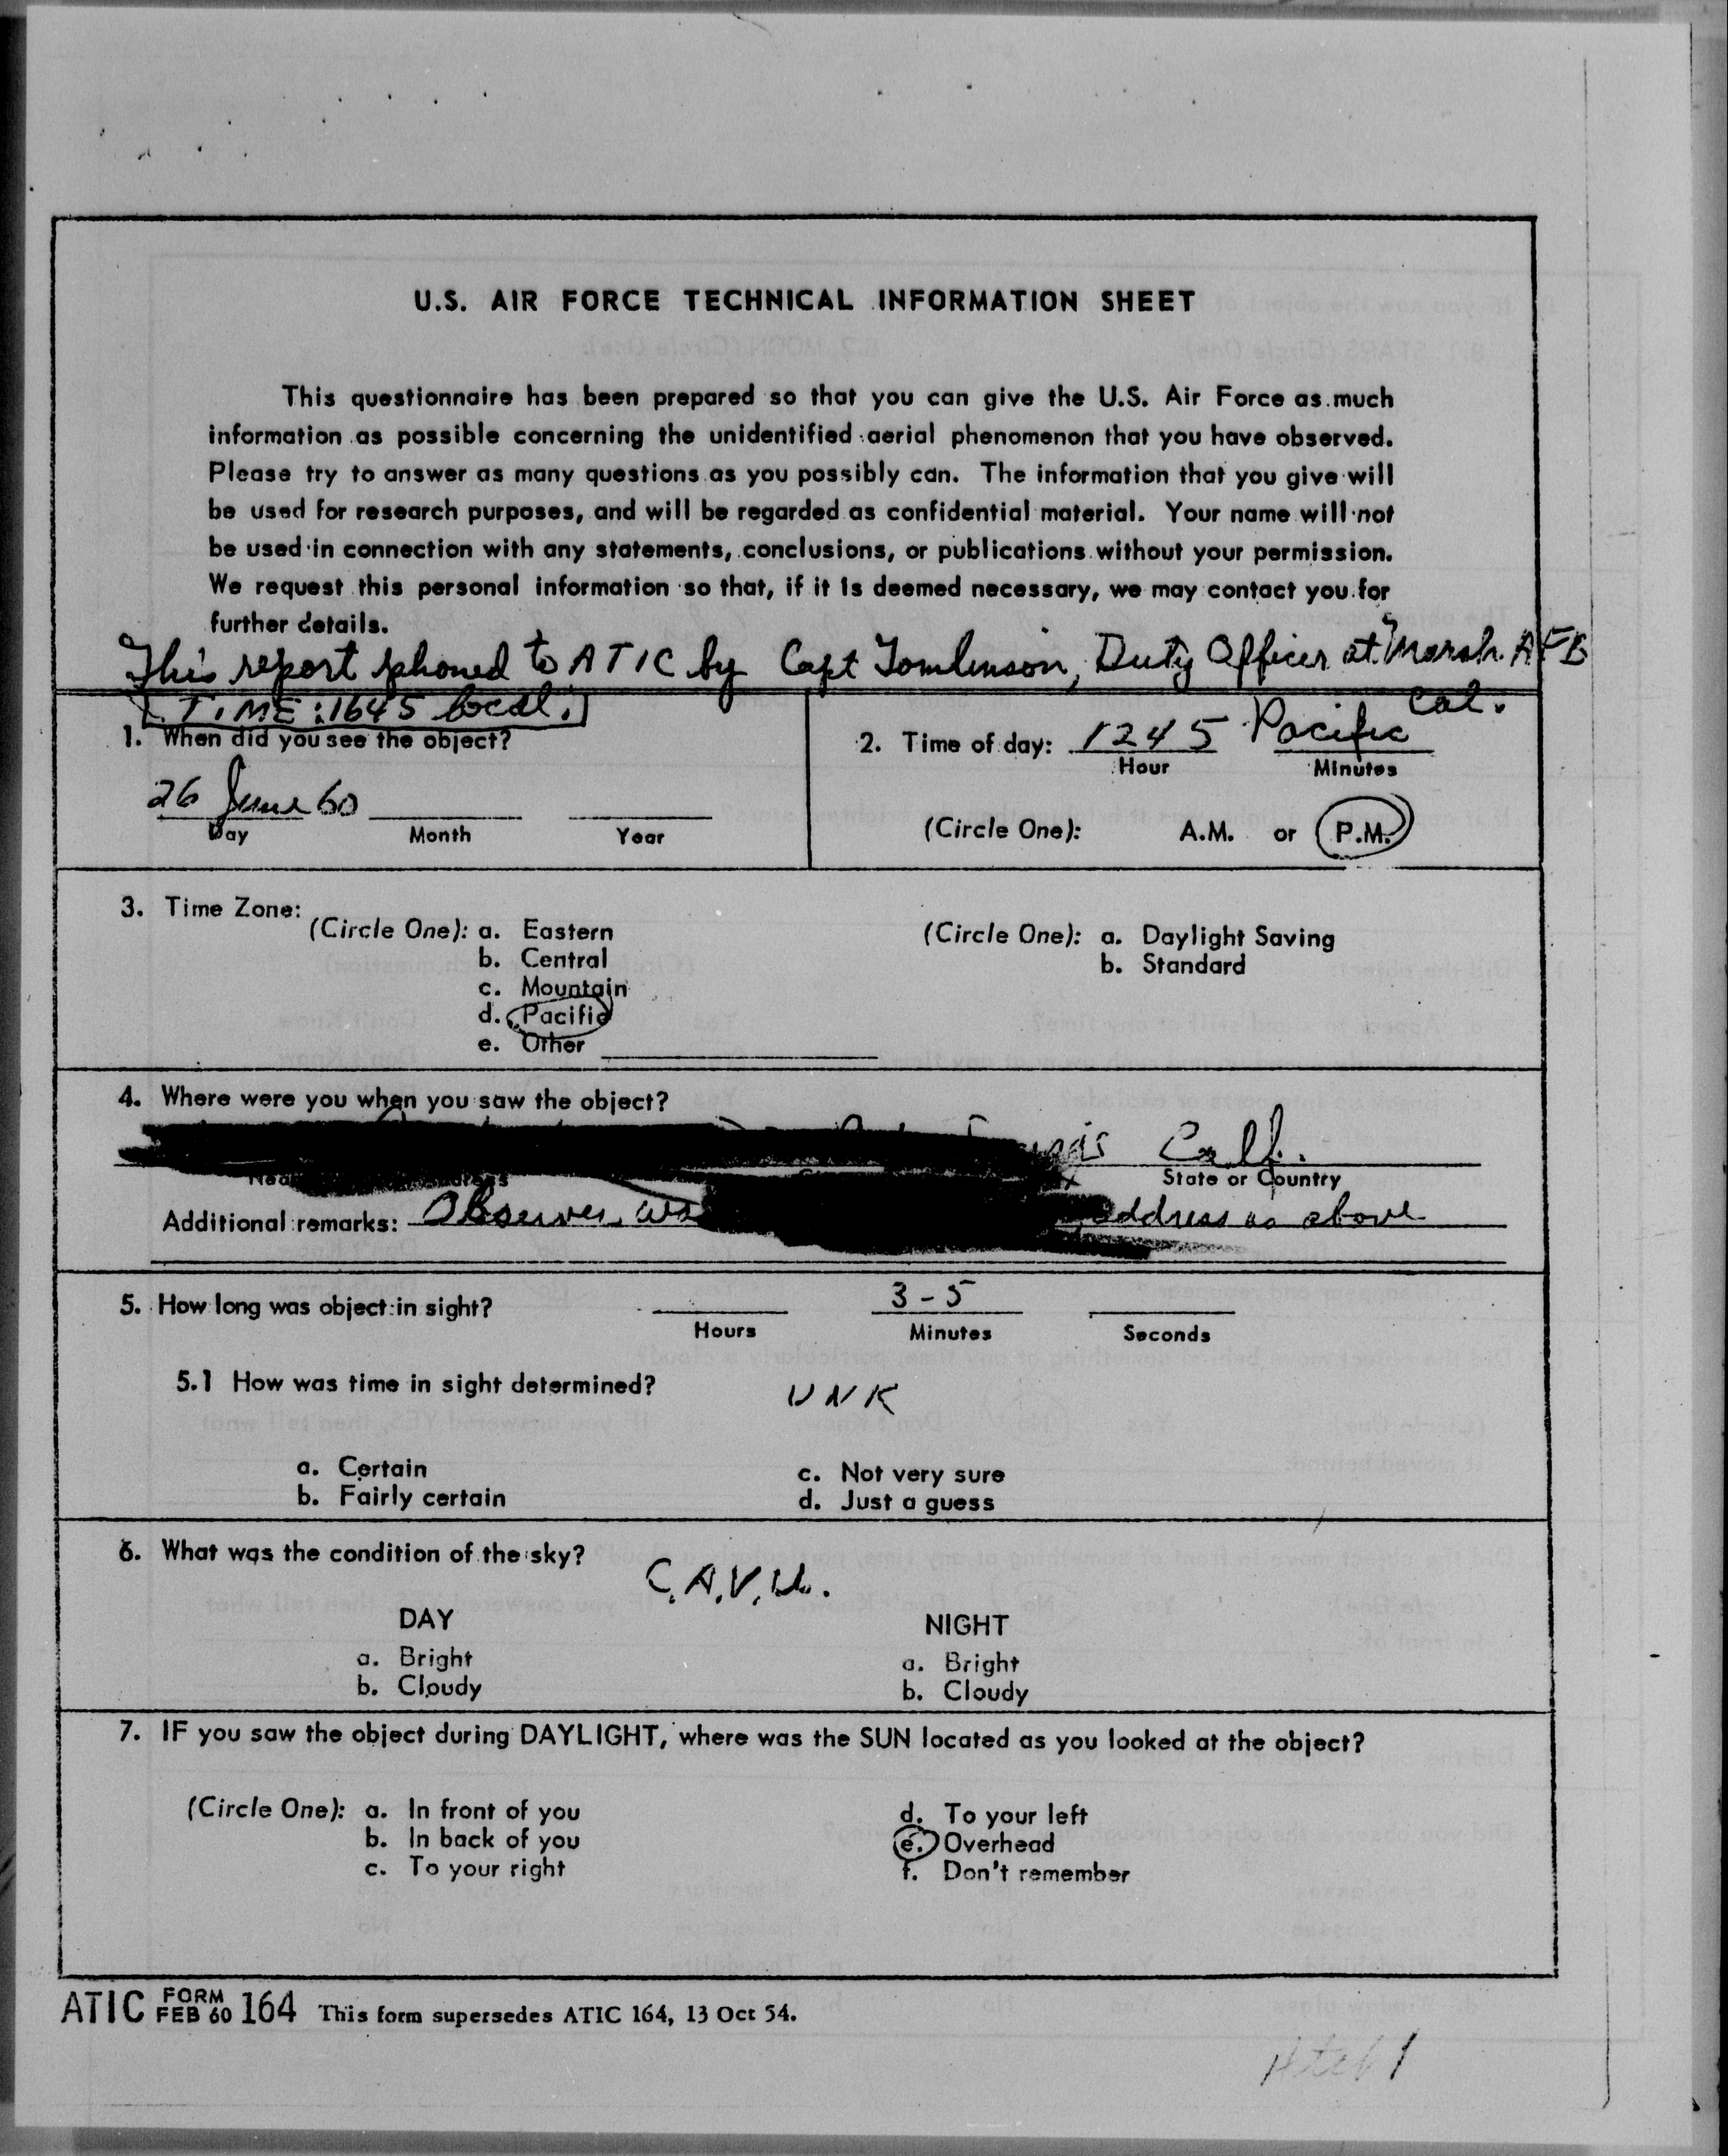 U.S. AIR FORCE TECHNICAL INFORMATION SHEET
This questionnaire has been prepared so that you can give the U.S. Air Force as much
information as possible concerning the unidentified aerial phenomenon that you have observed.
Please try to answer as many questions as you possibly can. The information that you give will
be used for research purposes, and will be regarded as confidential material. Your name will not
be used in connection with any statements, conclusions, or publications without your permission.
We request this personal information so that, if it is deemed necessary, we may contact you for
further details.
This report phoned to ATIC by Capt Tomlinson, Duty Officer at March AFB
Cal.
TIME: 1645 local.
1. When did you see the object?
26 June 60
Day Month Year
2. Time of day: 1245 Pacific
Hour Minutes
(Circle One): A.M. or P.M.
3. Time Zone:
(Circle One): a. Eastern
b. Central
c. Mountain
d. Pacific
e. Other
(Circle One): a. Daylight Saving
b. Standard
4. Where were you when you saw the object?
Calf.
State or Country
Additional remarks: Observer was address as above
5. How long was object in sight? 3-5
Hours Minutes Seconds
5.1 How was time in sight determined? UNK
a. Certain
b. Fairly certain
c. Not very sure
d. Just a guess
6. What was the condition of the sky?
C.A.V.U.
DAY
a. Bright
b. Cloudy
NIGHT
a. Bright
b. Cloudy
7. IF you saw the object during DAYLIGHT, where was the SUN located as you looked at the object?
(Circle One): a. In front of you
b. In back of you
c. To your right
d. To your left
e. Overhead
f. Don't remember
ATIC FORM FEB 60 164 This form supersedes ATIC 164, 13 Oct 54.